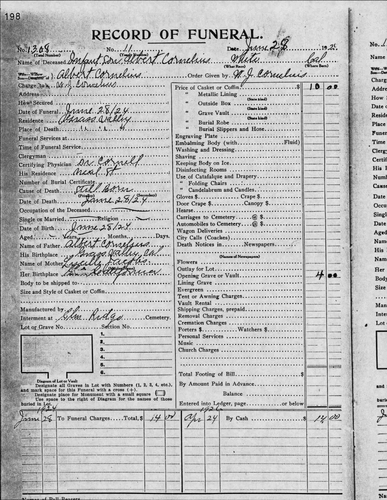 198
RECORD OF FUNERAL.
No. 1308 No. 11 Date June 28 1925
(Total Number) (Yearly Number)
Name of Deceased Infant Son Albert Cornelius White Cal
(What Race) (Where Born)
Albert Cornelius Order Given by W. J. Cornelius
Charge to W. J. Cornelius Price of Casket or Coffin $ 10 00
Address " Metallic Lining
How Secured " Outside Box
Date of Funeral June 28/24 " Grave Vault
Residence Grass Valley " Burial Robe
Place of Death " Burial Slippers and Hose
Funeral Services at Engraving Plate
Time of Funeral Service Embalming Body (with Fluid)
Clergyman Washing and Dressing
Certifying Physician Dr. Shaving
His Residence Neal St Keeping Body on Ice
Number of Burial Certificate Disinfecting Rooms
Cause of Death Still Born Use of Catafalque and Drapery
Date of Death June 28/24 " Folding Chairs
Occupation of the Deceased " Candelabrum and Candles
Single or Married Religion Gloves $ Crape $
Date of Birth June 28/24 Door Crape $ Canopy $
Aged Years Months Days. Hearse
Name of Father Albert Cornelius Carriages to Cemetery @ $
His Birthplace Grass Valley Cal Automobiles to Cemetery @ $
Name of Mother Wagon Deliveries
Her Birthplace California City Calls (Coaches)
Body to be shipped to Death Notices in Newspapers
Size and Style of Casket or Coffin (Names of Newspapers)
Flowers
Outlay for Lot
Manufactured by Opening Grave or Vault 4 00
Interment at Cemetery Lining Grave
Lot or Grave No. Section No. Evergreen
Tent or Awning
Vault Rental
Shipping Charges, prepaid
Removal Charges
Cremation Charges
Porters $ Watchers $
Personal Services
Music
Church Charges
Diagram of Lot or Vault
Designate all Graves in Lot with Numbers (1, 2, 3, 4, etc.), and mark space for this Funeral with a cross (+).
Designate place for Monument with a small square □
Use space to the right of Diagram for the names of those buried in Lot.
Total Footing of Bill $
By Amount Paid in Advance
Balance
Entered into Ledger, page or below.
1924 1926
June 28 To Funeral Charges, Total $ 14 00 Apr 24 By Cash $ 14 00